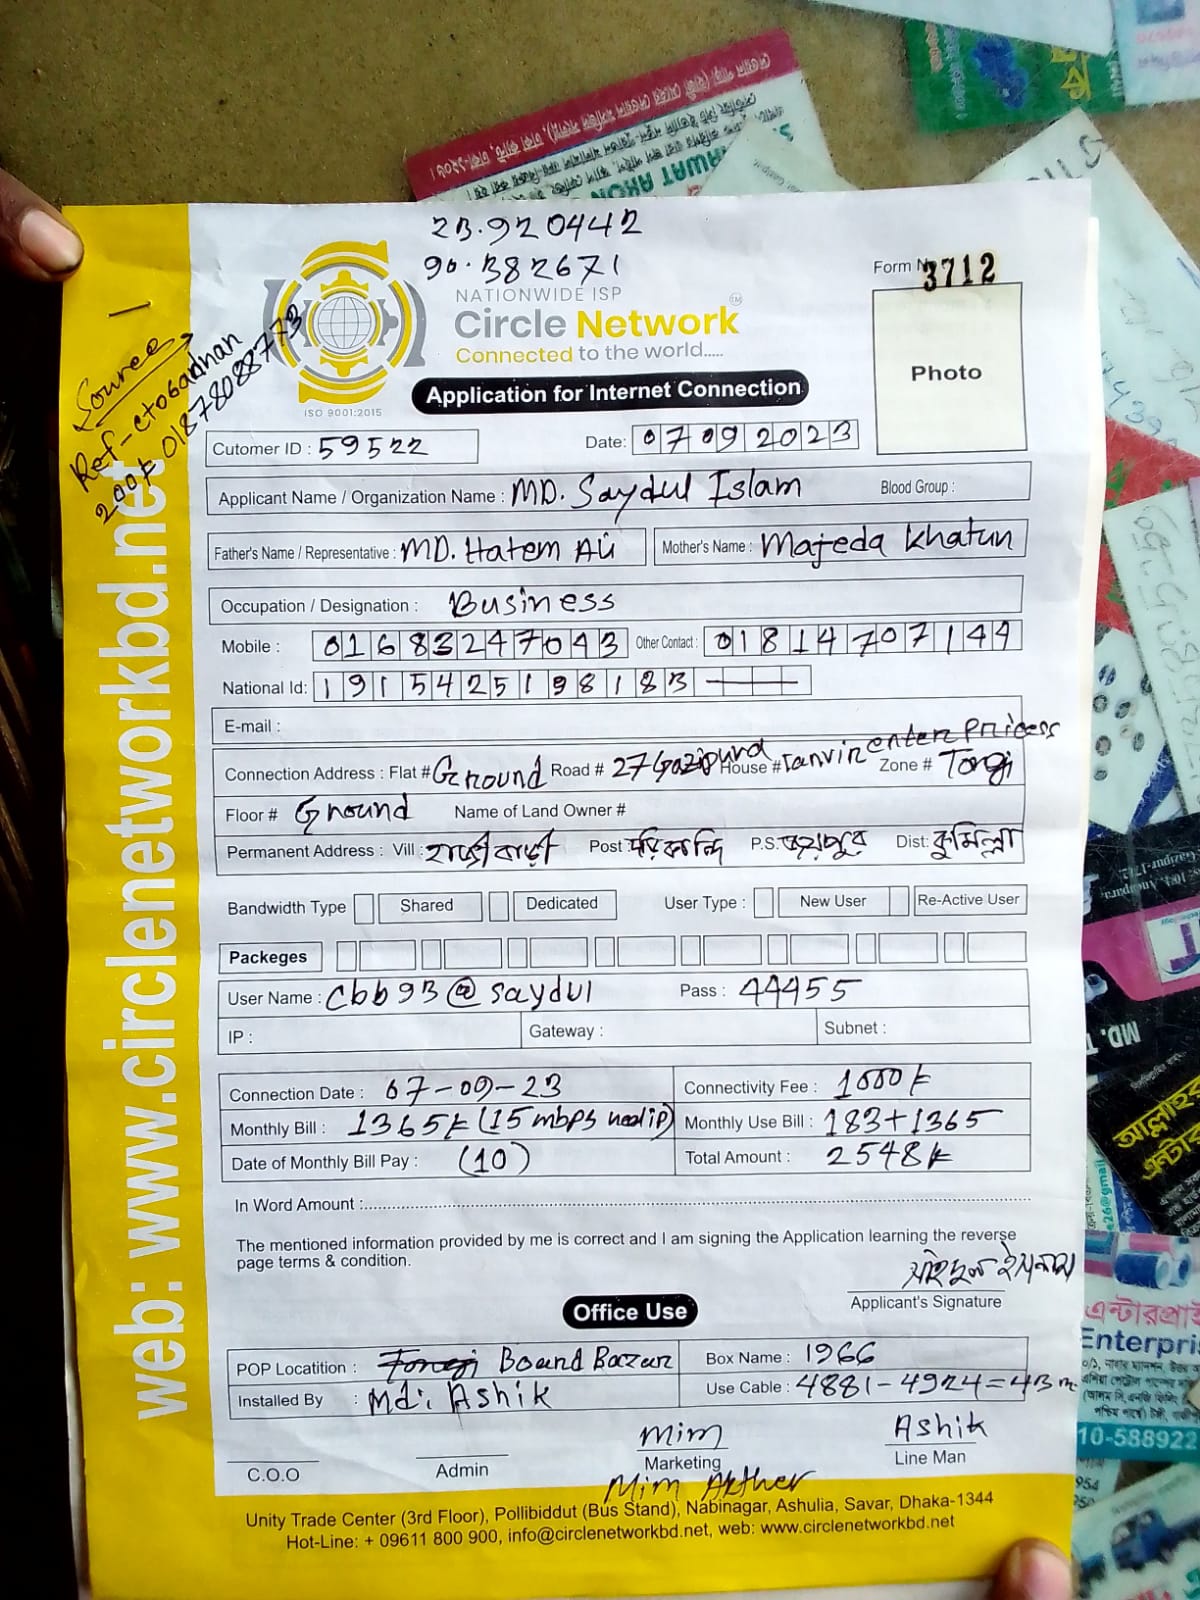 23.920442
90.382671
NATIONWIDE ISP
Circle Network
TM
Connected to the world.....
ISO 9001:2015
Form No 3712
Photo
Application for Internet Connection
Sources
Ref-ctobadnan
200৳ 01878088773
web: www.circlenetworkbd.net
Cutomer ID : 59522 Date: 07092023
Applicant Name / Organization Name : MD. Saydul Islam Blood Group :
Father's Name / Representative : MD. Hatem Ali Mother's Name : Majeda Khatun
Occupation / Designation : Business
Mobile : 01683247043 Other Contact : 01814707144
National Id: 1915425198183
E-mail :
Connection Address : Flat # Ground Road # 27 Gazipura House # Tanvir enterpricess Zone # Tongi
Floor # Ground Name of Land Owner #
Permanent Address : Vill : Post P.S. Dist: কুমিল্লা
Bandwidth Type Shared Dedicated User Type : New User Re-Active User
Packeges
User Name : cbb93@saydul Pass : 44455
IP : Gateway : Subnet :
Connection Date : 07-09-23 Connectivity Fee : 1000৳
Monthly Bill : 1365৳ (15 mbps realip) Monthly Use Bill : 183+1365
Date of Monthly Bill Pay : (10) Total Amount : 2548৳
In Word Amount :
The mentioned information provided by me is correct and I am signing the Application learning the reverse
page terms & condition.
সাইদুল ইসলাম
Applicant's Signature
Office Use
POP Locatition : Tongi Board Bazar Box Name : 1966
Installed By : Md: Ashik Use Cable : 4881-4924=43m
Mim Ashik
C.O.O Admin Marketing Line Man
Mim Akther
Unity Trade Center (3rd Floor), Pollibiddut (Bus Stand), Nabinagar, Ashulia, Savar, Dhaka-1344
Hot-Line: + 09611 800 900, info@circlenetworkbd.net, web: www.circlenetworkbd.net
RAWAT AKON
MD.
আল্লাহর
এন্টার
এন্টারপ্রাই
Enterpris
10-588922